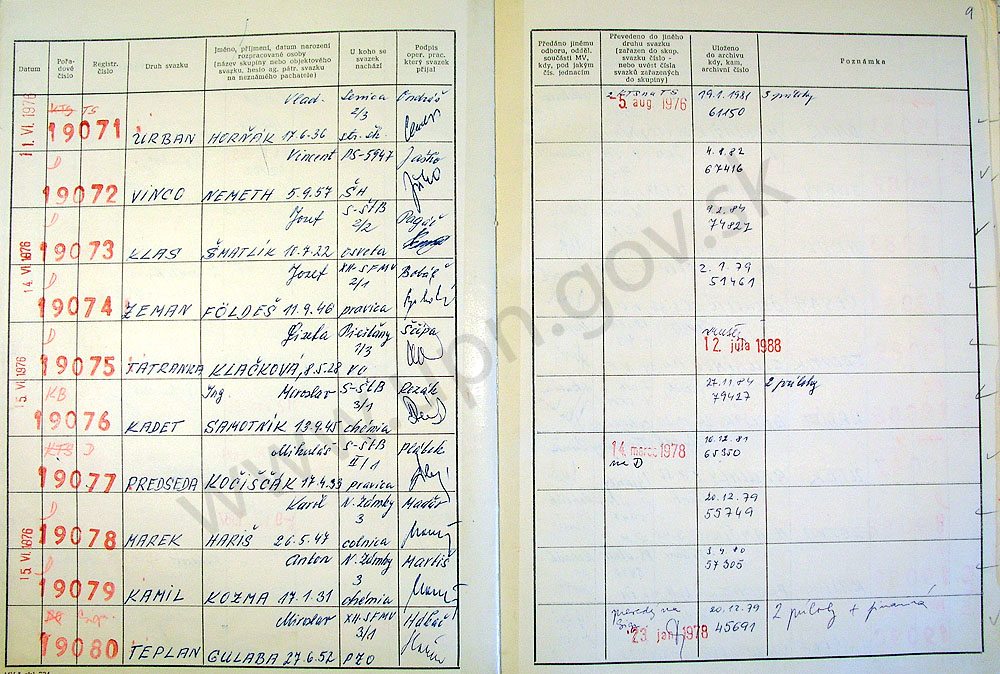 9
Datum
Pořadové číslo
Registr. číslo
Druh svazku
Jméno, příjmení, datum narození rozpracované osoby (název skupiny nebo objektového svazku, heslo ag. pátr. svazku na neznámého pachatele)
U koho se svazek nachází
Podpis oper. prac. který svazek přijal
Předáno jinému odboru, odděl. součásti MV, kdy, pod jakým čís. jednacím
Převedeno do jiného druhu svazku (zařazen do skup. svazku číslo - nebo uvést čísla svazků zařazených do skupiny)
Uloženo do archivu kdy, kam, archivní číslo
Poznámka
11. VI. 1976
KTS TS
19071
URBAN
Vlad.
HORŇÁK 17.6.36
Senica
2/3
str. šk.
Ondráš
2 KTS na TS
-5. aug 1976
19.1.1981
61150
3 prílohy
D
19072
VINCO
Vincent
NEMETH 5.9.57
PS-5947
ŠH
Jaško
4.8.82
67416
14. VI. 1976
D
19073
KLAS
Jozef
ŠMATLÍK 18.7.22
S-ŠtB
2/2
osveta
Pagáč
9.2.84
74827
D
19074
ZEMAN
Jozef
FÖLDEŠ 11.9.46
XII-SFMV
2/1
pravica
Bobáš
2.1.79
51461
15. VI. 1976
D
19075
TATRANKA
Gizela
KLAČKOVÁ, 8.5.28
Piešťany
1/3
VO
Ščípa
12. júla 1988
KB
19076
KADET
Ing Miroslav
SAMOTNÍK 13.9.45
S-ŠtB
3/1
chémia
Rezák
27.11.84
79427
2 prílohy
KTS D
19077
PREDSEDA
Mikuláš
KOČIŠČÁK 17.4.33
S-ŠtB
II/1
pravica
Plábek
14. marec 1978
na D
10.12.81
65350
15. VI. 1976
D
19078
MAREK
Karel
HARIŠ 26.5.47
N. Zámky
3
colnica
Maďar
20.12.79
55749
D
19079
KAMIL
Anton
KOZMA 17.1.31
N. Zámky
3
chémia
Martiš
3.4.80
57305
19080
TEPLAN
Miroslav
GULABA 27.6.52
XII.SFMV
3/1
PZO
Hlbáč
23. jan 1978
20.12.79
45691
2 prílohy + finančná
www.upn.gov.sk